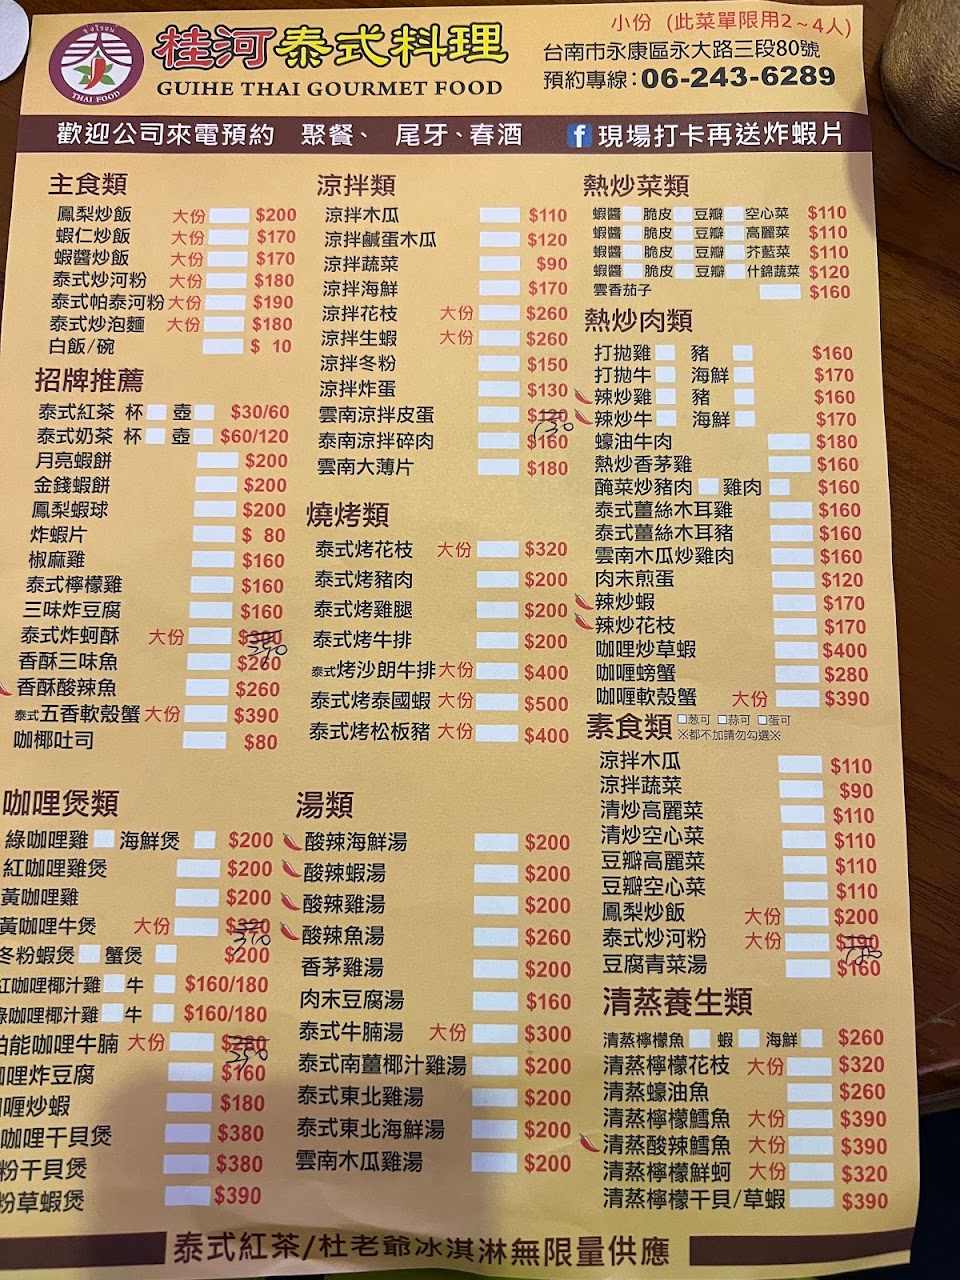 桂河泰式料理
GUIHE THAI GOURMET FOOD
THAI FOOD
小份 (此菜單限用2~4人)
台南市永康區永大路三段80號
預約專線:06-243-6289
歡迎公司來電預約 聚餐、 尾牙、春酒 f 現場打卡再送炸蝦片
主食類
鳳梨炒飯 大份 $200
蝦仁炒飯 大份 $170
蝦醬炒飯 大份 $170
泰式炒河粉 大份 $180
泰式帕泰河粉 大份 $190
泰式炒泡麵 大份 $180
白飯/碗 $ 10
招牌推薦
泰式紅茶 杯 壺 $30/60
泰式奶茶 杯 壺 $60/120
月亮蝦餅 $200
金錢蝦餅 $200
鳳梨蝦球 $200
炸蝦片 $ 80
椒麻雞 $160
泰式檸檬雞 $160
三味炸豆腐 $160
泰式炸蚵酥 大份 390
香酥三味魚 $260
香酥酸辣魚 $260
泰式五香軟殼蟹 大份 $390
咖椰吐司 $80
咖哩煲類
綠咖哩雞 海鮮煲 $200
紅咖哩雞煲 $200
黃咖哩雞 $200
黃咖哩牛煲 大份
冬粉蝦煲 蟹煲 $200
紅咖哩椰汁雞 牛 $160/180
綠咖哩椰汁雞 牛 $160/180
帕能咖哩牛腩 大份 $280
咖哩炸豆腐 $160
咖喱炒蝦 $180
咖哩干貝煲 $380
粉干貝煲 $380
粉草蝦煲 $390
涼拌類
涼拌木瓜 $110
涼拌鹹蛋木瓜 $120
涼拌蔬菜 $90
涼拌海鮮 $170
涼拌花枝 大份 $260
涼拌生蝦 大份 $260
涼拌冬粉 $150
涼拌炸蛋 $130
雲南涼拌皮蛋 $120 130
泰南涼拌碎肉 $160
雲南大薄片 $180
燒烤類
泰式烤花枝 大份 $320
泰式烤豬肉 $200
泰式烤雞腿 $200
泰式烤牛排 $200
泰式烤沙朗牛排 大份 $400
泰式烤泰國蝦 大份 $500
泰式烤松板豬 大份 $400
湯類
酸辣海鮮湯 $200
酸辣蝦湯 $200
酸辣雞湯 $200
酸辣魚湯 $260
香茅雞湯 $200
肉末豆腐湯 $160
泰式牛腩湯 大份 $300
泰式南薑椰汁雞湯 $200
泰式東北雞湯 $200
泰式東北海鮮湯 $200
雲南木瓜雞湯 $200
熱炒菜類
蝦醬 脆皮 豆瓣 空心菜 $110
蝦醬 脆皮 豆瓣 高麗菜 $110
蝦醬 脆皮 豆瓣 芥藍菜 $110
蝦醬 脆皮 豆瓣 什錦蔬菜 $120
雲香茄子 $160
熱炒肉類
打拋雞 豬 $160
打拋牛 海鮮 $170
辣炒雞 豬 $160
辣炒牛 海鮮 $170
蠔油牛肉 $180
熱炒香茅雞 $160
醃菜炒豬肉 雞肉 $160
泰式薑絲木耳雞 $160
泰式薑絲木耳豬 $160
雲南木瓜炒雞肉 $160
肉末煎蛋 $120
辣炒蝦 $170
辣炒花枝 $170
咖哩炒草蝦 $400
咖喱螃蟹 $280
咖喱軟殼蟹 大份 $390
素食類 □葱可 □蒜可 □蛋可
※都不加請勿勾選※
涼拌木瓜 $110
涼拌蔬菜 $90
清炒高麗菜 $110
清炒空心菜 $110
豆瓣高麗菜 $110
豆瓣空心菜 $110
鳳梨炒飯 大份 $200
泰式炒河粉 大份 $190 180
豆腐青菜湯 $160
清蒸養生類
清蒸檸檬魚 蝦 海鮮 $260
清蒸檸檬花枝 大份 $320
清蒸蠔油魚 $260
清蒸檸檬鱈魚 大份 $390
清蒸酸辣鱈魚 大份 $390
清蒸檸檬鮮蚵 大份 $320
清蒸檸檬干貝/草蝦 $390
泰式紅茶/杜老爺冰淇淋無限量供應